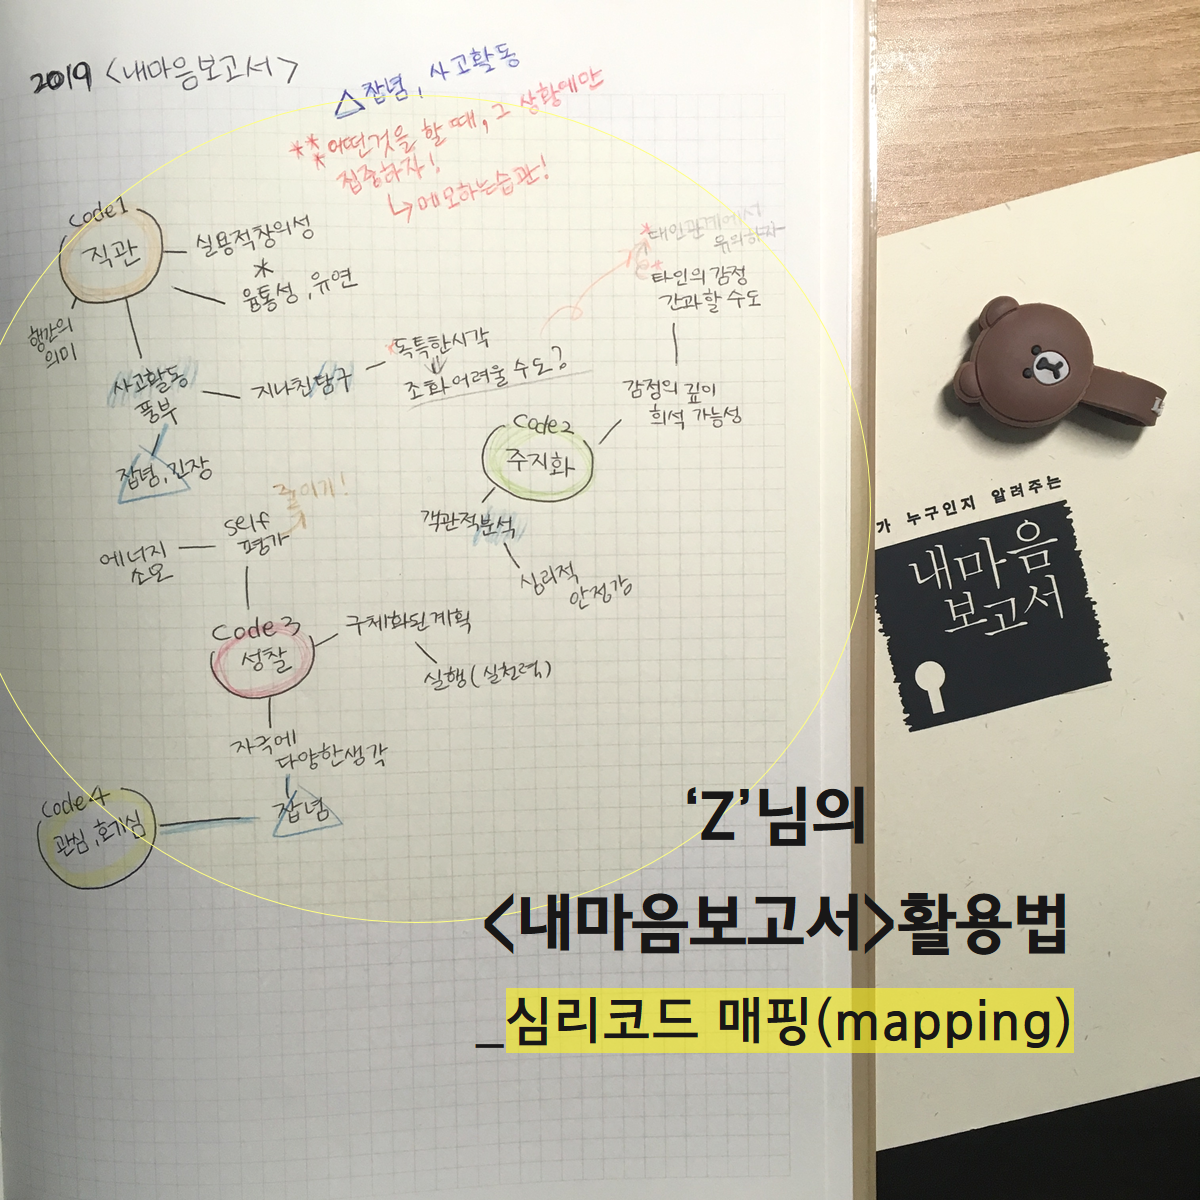 2019 <내마음보고서>
△ 잡념, 사고활동
*** 어떤것을 할 때, 그 상황에만
집중하자!
↳ 메모하는습관!
code1
직관
실용적창의성
*
융통성, 유연
행간의
의미
사고활동
풍부
잡념, 긴장
지나친탐구
*독특한시각
조화어려울 수도?
*대인관계에서
유의하자
타인의 감정
간과할 수도
감정의 깊이
희석 가능성
code2
주지화
객관적분석
심리적
안정감
줄이기!
self
평가
에너지
소모
Code3
성찰
구체화된계획
실행(실천력)
자극에
다양한생각
잡념
code4
관심, 호기심
가 누구인지 알려주는
내마음
보고서
‘Z’님의
<내마음보고서>활용법
_심리코드 매핑(mapping)